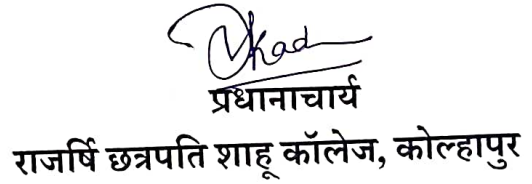 प्रधानाचार्य
राजर्षि छत्रपति शाहू कॉलेज, कोल्हापुर